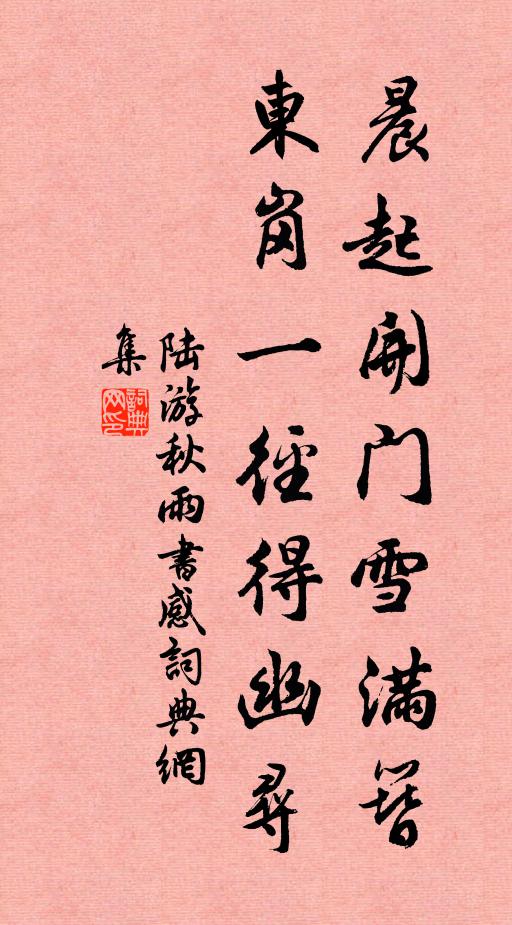 晨起開门雪滿簪
東崗一徑得幽尋
陆游秋雨書感詞典網
集
詞典网印